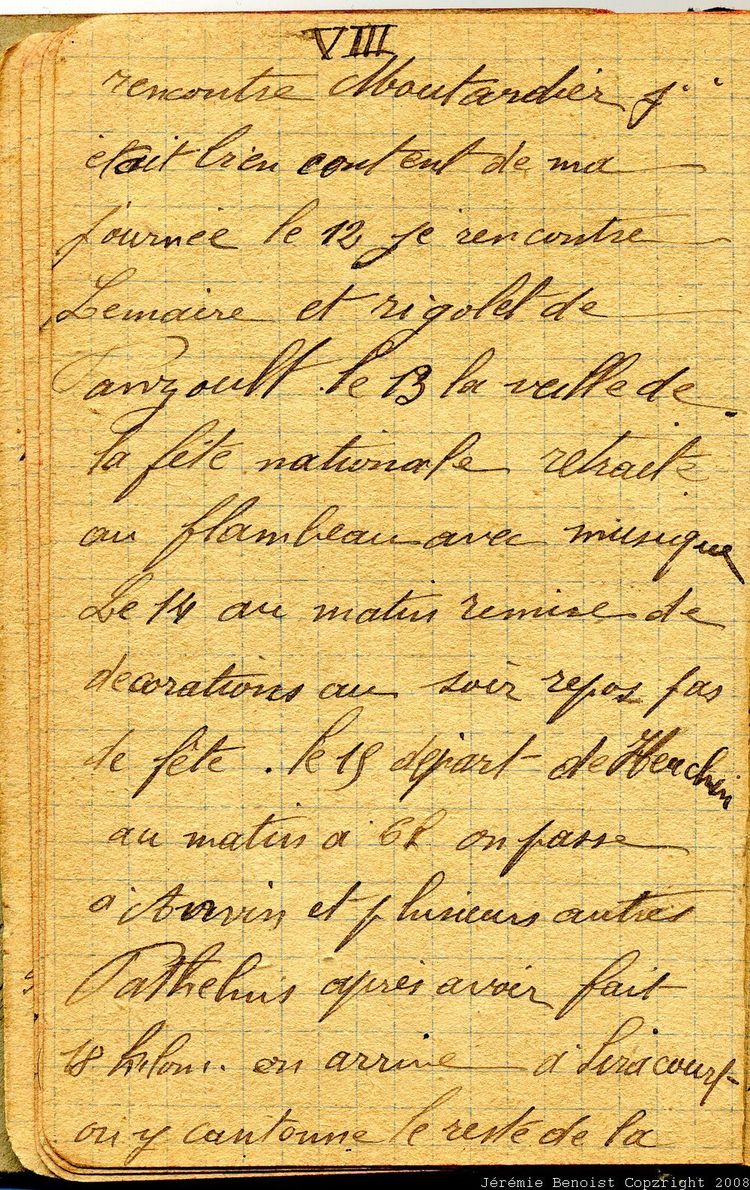 VIII
rencontre Moutardier j'
était bien content de ma
journée le 12 je rencontre
Lemaire et rigolet de
Panzoult. le 13 la veille de
la fête nationale retraite
au flambeau avec musique
Le 14 au matin remise de
decorations au soir repos pas
de fête. le 15 départ de Heuchin
au matin a 6h on passe
a Anvin et plusieurs autres
Pathelins après avoir fait
18 kilom. on arrive a Siracourt
on y cantonne le reste de la
Jérémie Benoist Copzright 2008